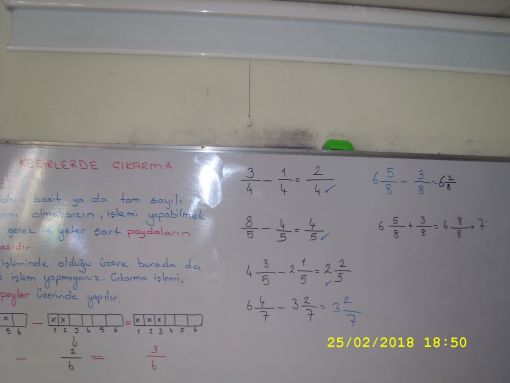 KESİRLERDE ÇIKARMA
basit ya da tam sayılı
olmaksızın, işlemi yapabilmek
gerek ve yeter şart paydaların
işleminde olduğu üzere burada da
işlem yapmıyoruz. Çıkarma işlemi,
paylar üzerinde yapılır.
x 5 6 − x x 1 2 3 4 5 6 = x x x 1 2 3 4 5 6
− 2/6 = 3/6
3/4 − 1/4 = 2/4 ✓
8/5 − 4/5 = 4/5 ✓
4 3/5 − 2 1/5 = 2 2/5 ✓
6 4/7 − 3 2/7 = 3 2/7
6 5/8 − 3/8 = 6 2/8
6 5/8 + 3/8 = 6 8/8 = 7
25/02/2018 18:50